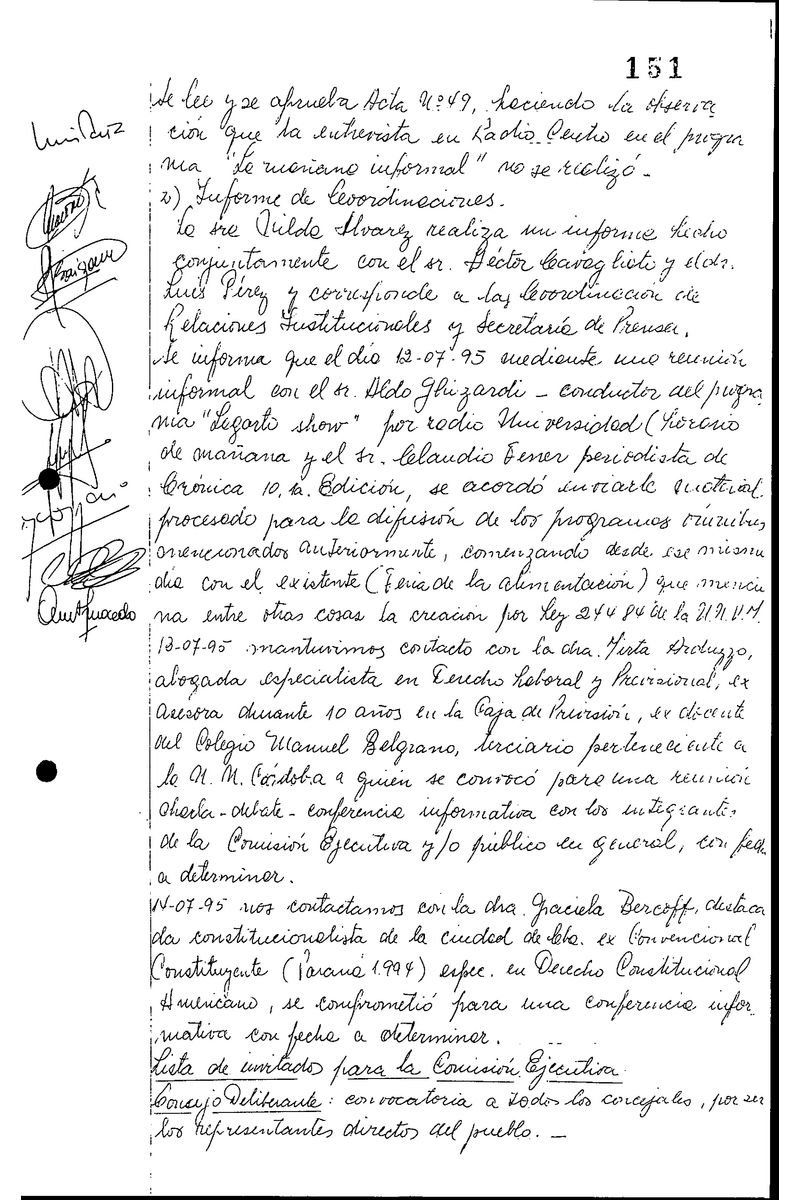 151
Se lee y se aprueba Acta Nº 49, haciendo la observa
ción que la entrevista en Radio Centro en el progra
ma "La mañana informal" no se realizó.-
2) Informe de Coordinaciones.
La sra Nilda Alvarez realiza un informe hecho
conjuntamente con el sr. Héctor Cavagliato y el dr.
Luis Pérez y corresponde a las Coordinación de
Relaciones Institucionales y Secretaría de Prensa.
Se informa que el día 12-07-95 mediante una reunión
informal con el sr. Aldo Ghizardi - conductor del progra
ma "Lagarto show" por radio Universidad (horario
de mañana y el sr. Claudio Fener periodista de
Crónica 10, 1a. Edición, se acordó enviarle material
procesado para la difusión de los programas ómnibus
mencionados anteriormente, comenzando desde ese mismo
día con el existente (Feria de la alimentación) que mencio
na entre otras cosas la creación por Ley 24484 de la U.N.V.M.
13-07-95 mantuvimos contacto con la dra. Mirta Arduzzo,
abogada especialista en Derecho Laboral y Previsional, ex
Asesora durante 10 años en la Caja de Previsión, ex docente
del Colegio Manuel Belgrano, terciario perteneciente a
la U. N. Córdoba a quién se convocó para una reunión
charla-debate-conferencia informativa con los integrantes
de la Comisión Ejecutiva y/o público en general, con fecha
a determinar.
14-07-95 nos contactamos con la dra. Graciela Bercoff, destaca
da constitucionalista de la ciudad de Cba. ex Convencional
Constituyente (Paraná 1.994) espec. en Derecho Constitucional
Americano, se comprometió para una conferencia infor
mativa con fecha a determinar.
Lista de invitados para la Comisión Ejecutiva
Concejo Deliberante: convocatoria a todos los concejales, por ser
los representantes directos del pueblo. -